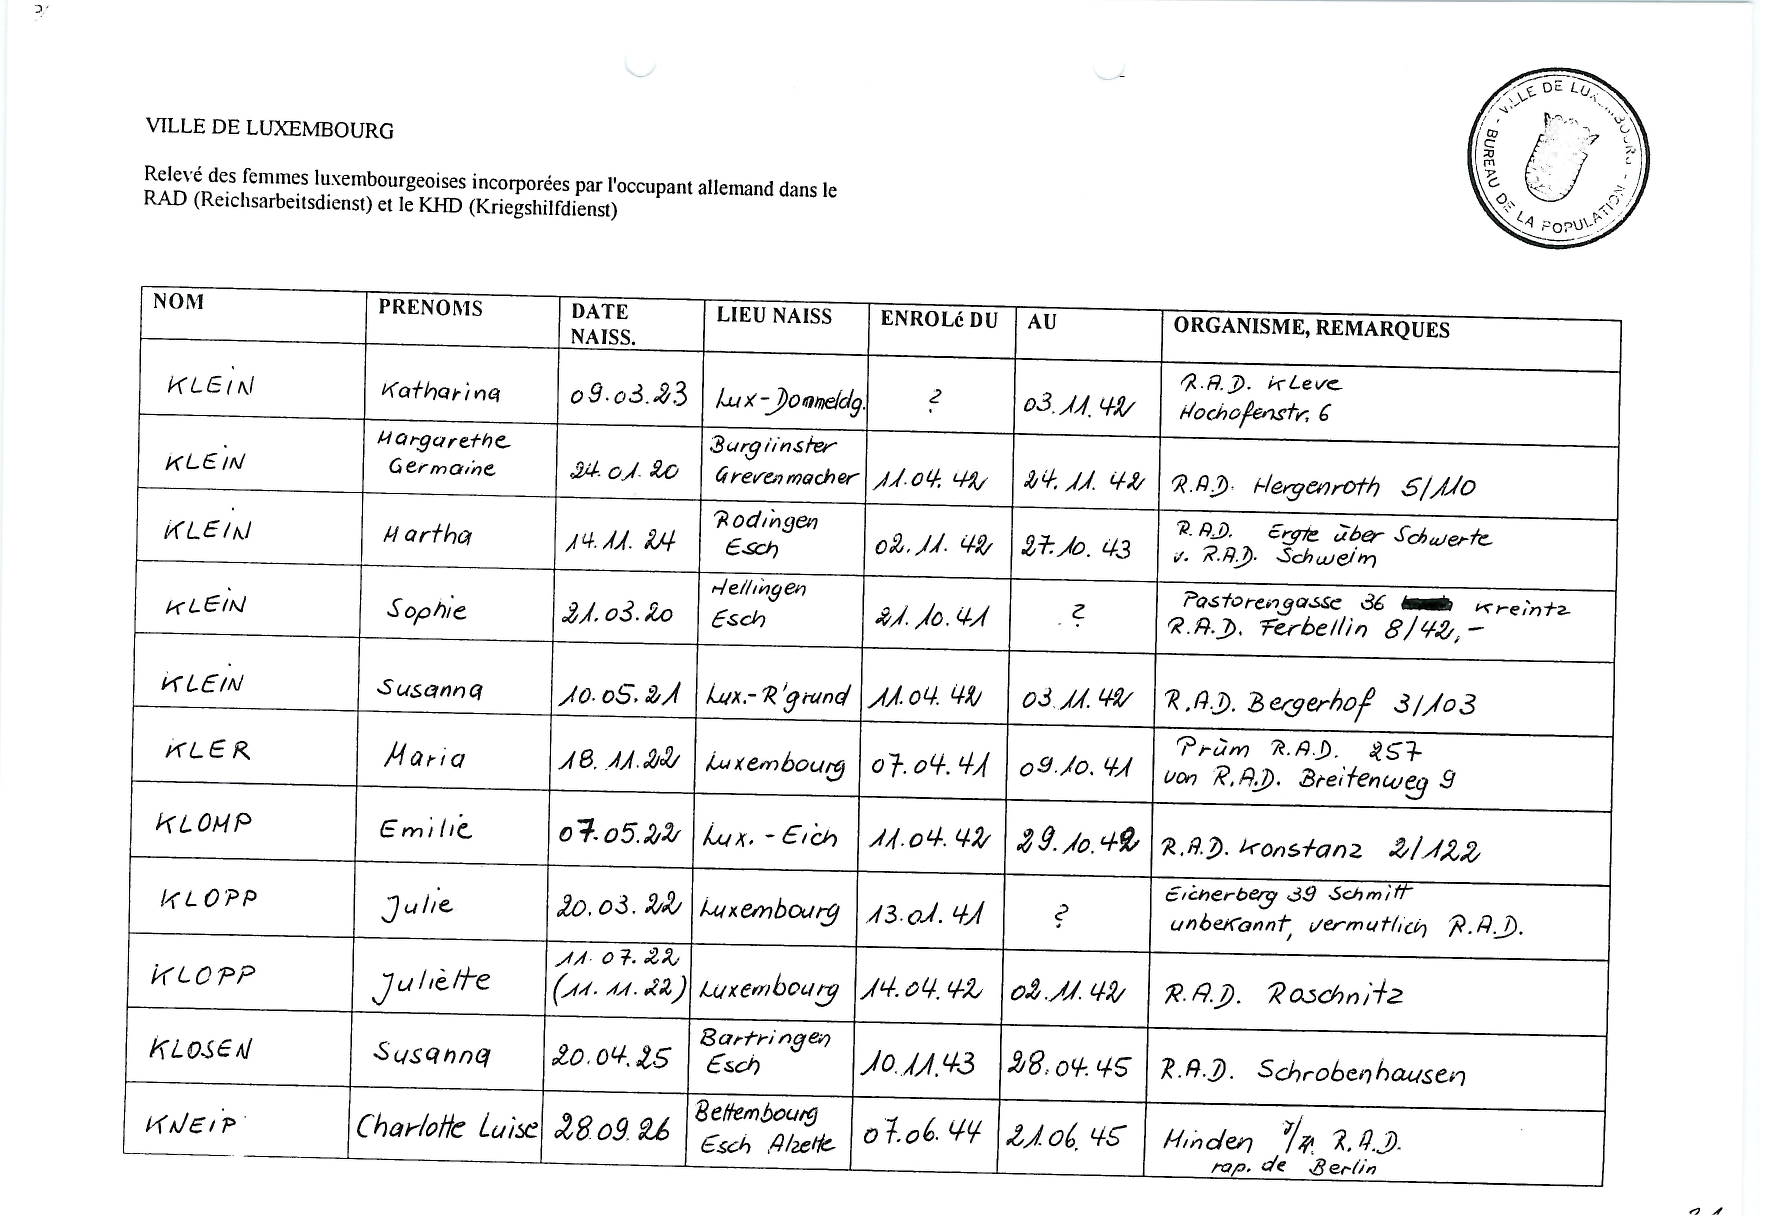 VILLE DE LUXEMBOURG
Relevé des femmes luxembourgeoises incorporées par l'occupant allemand dans le
RAD (Reichsarbeitsdienst) et le KHD (Kriegshilfdienst)
VILLE DE LUXEMBOURG - BUREAU DE LA POPULATION -
NOM PRENOMS DATE NAISS. LIEU NAISS ENROLé DU AU ORGANISME, REMARQUES
KLEIN Katharina 09.03.23 Lux-Dommeldg. ? 03.11.42 R.A.D. Kleve
Hochofenstr. 6
KLEIN Margarethe Germaine 24.01.20 Burglinster Grevenmacher 11.04.42 24.11.42 R.A.D. Hergenroth 5/110
KLEIN Martha 14.11.24 Rodingen Esch 02.11.42 27.10.43 R.A.D. Ergte über Schwerte
v. R.A.D. Schwelm
KLEIN Sophie 21.03.20 Hellingen Esch 21.10.41 ? Pastorengasse 36 Kreintz
R.A.D. Ferbellin 8/42,-
KLEIN Susanna 10.05.21 Lux.-R'grund 11.04.42 03.11.42 R.A.D. Bergerhof 3/103
KLER Maria 18.11.22 Luxembourg 07.04.41 09.10.41 Prüm R.A.D. 257
von R.A.D. Breitenweg 9
KLOMP Emilie 07.05.22 Lux.-Eich 11.04.42 29.10.42 R.A.D. Konstanz 2/122
KLOPP Julie 20.03.22 Luxembourg 13.01.41 ? Eicherberg 39 Schmitt
unbekannt, vermutlich R.A.D.
KLOPP Juliètte 11.07.22 (11.11.22) Luxembourg 14.04.42 02.11.42 R.A.D. Roschnitz
KLOSEN Susanna 20.04.25 Bartringen Esch 10.11.43 28.04.45 R.A.D. Schrobenhausen
KNEIP Charlotte Luise 28.09.26 Bettembourg Esch Alzette 07.06.44 21.06.45 Minden R.A.D.
rap. de Berlin